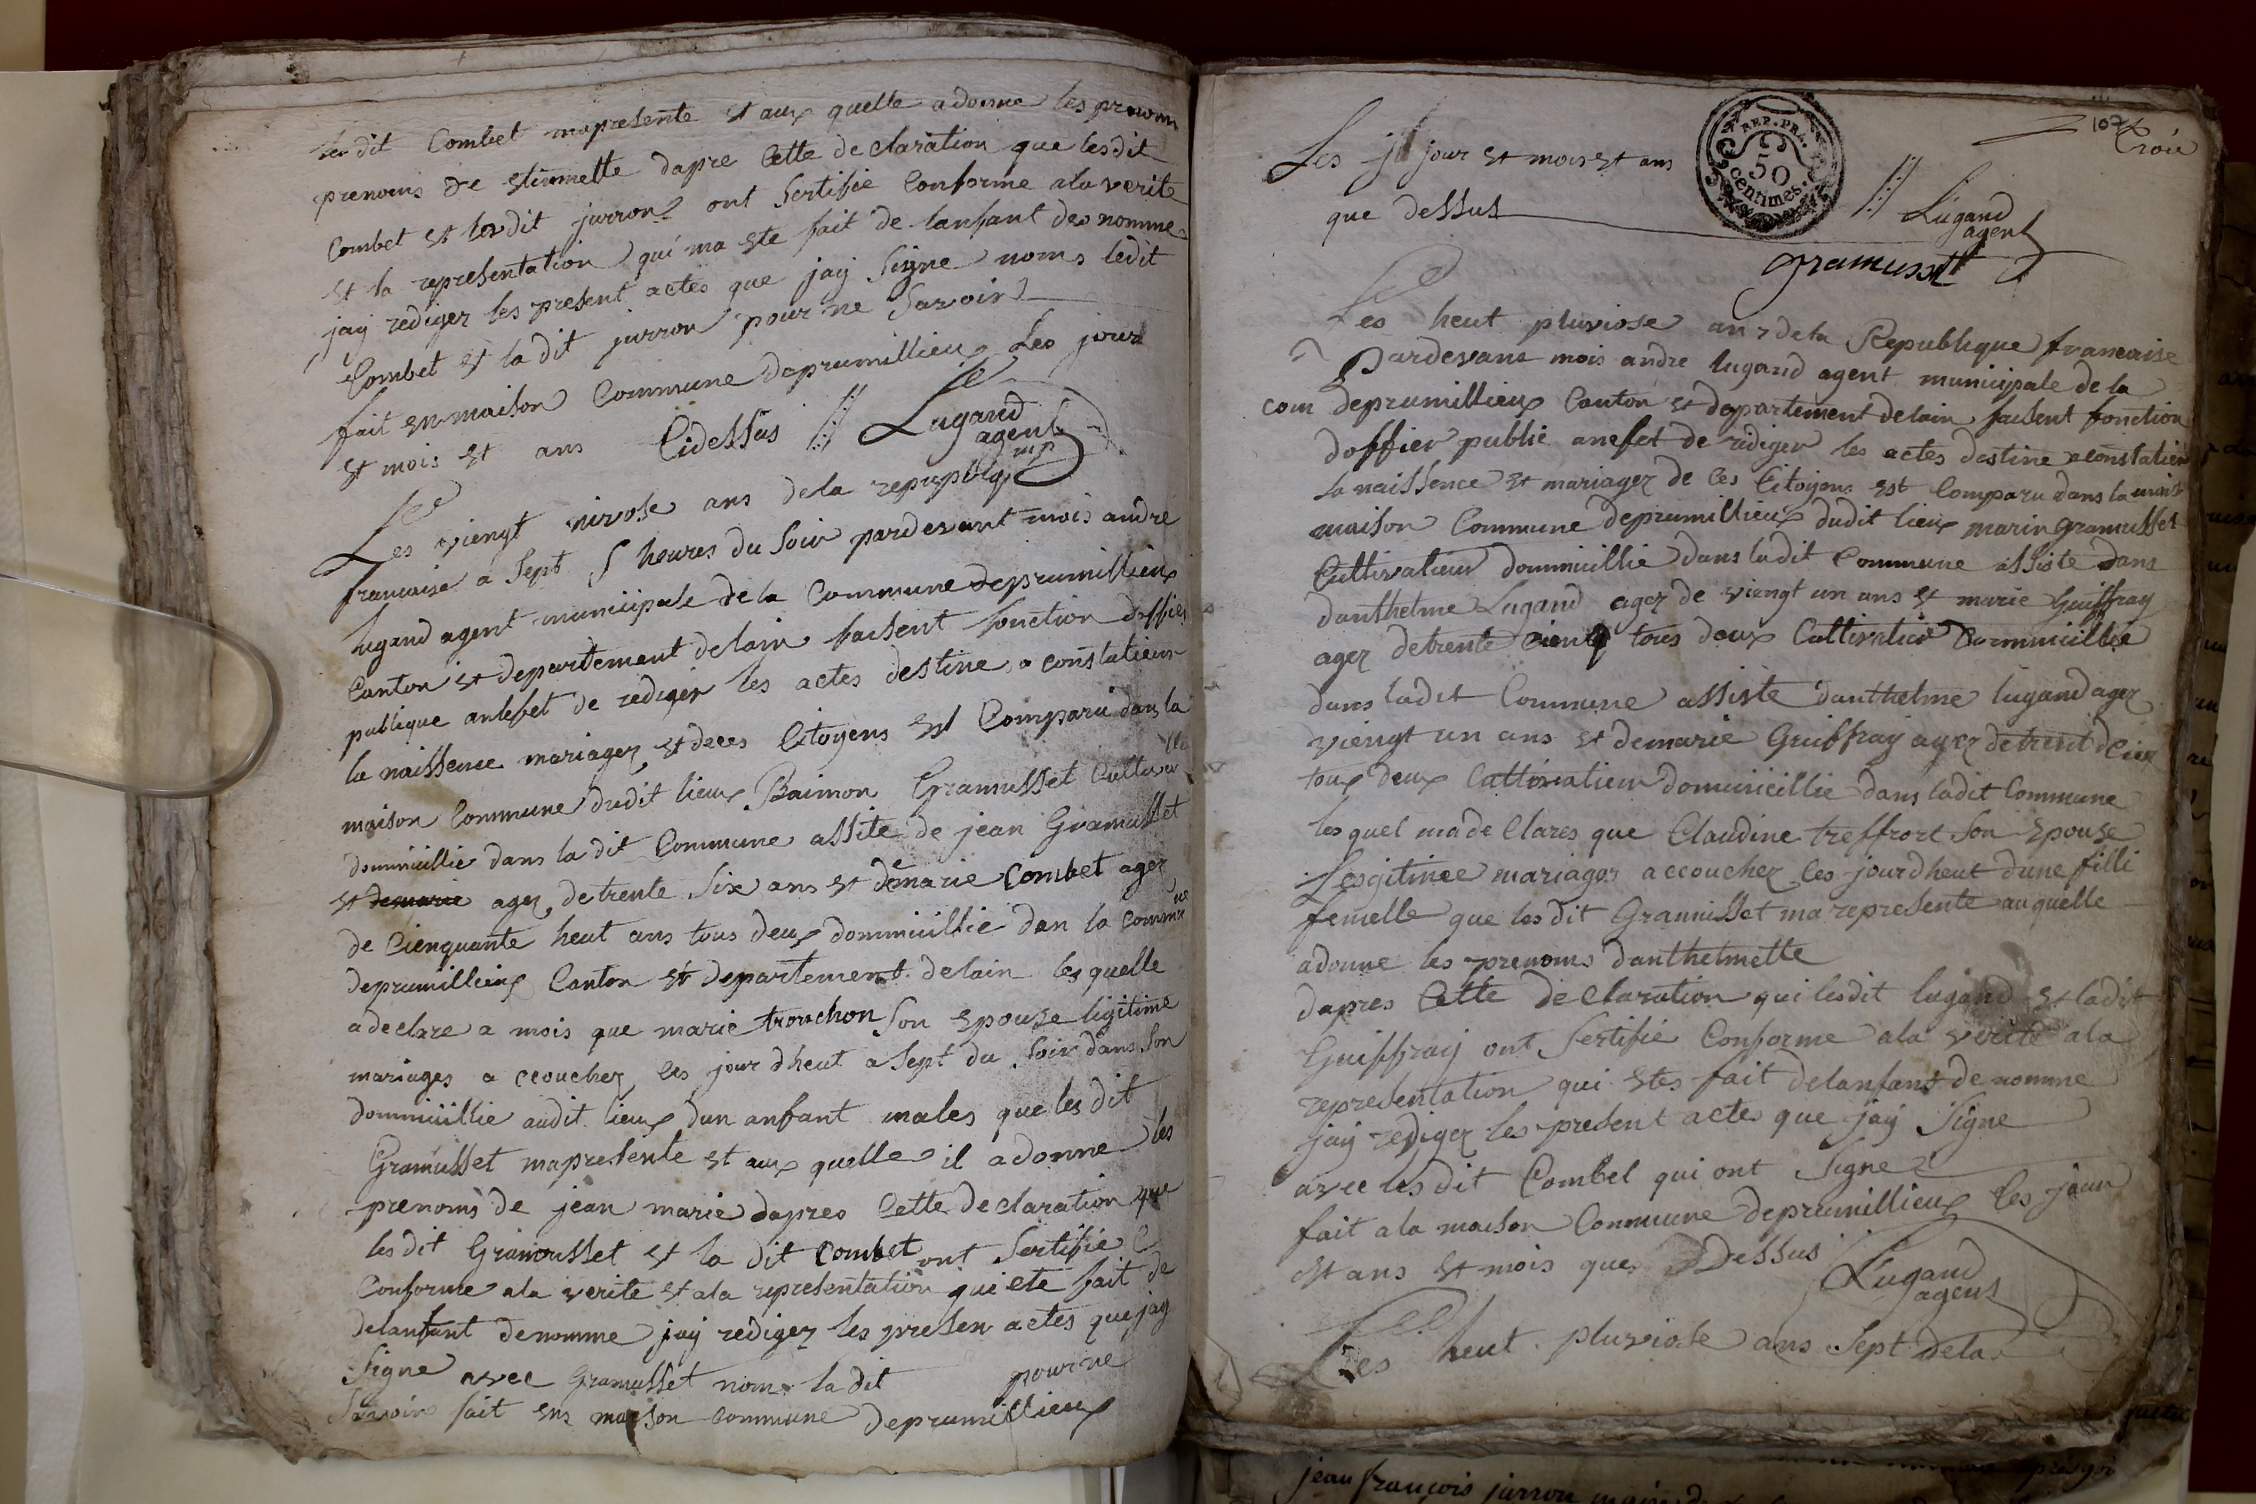 les dit Combet mapresente et aux quelle adonne les prenom
prenoms de etiennette dapre Cette de claration que lesdit
Combet et les dit jurron ont Sertifie Conforme ala verite
et la representation qui ma ete fait de lanfant de nomme
jay rediger les present actes que jay Signe noms ledit
Combet et la dit jurron pour ne Savoir
fait en maison Commune deprumillieux Les jour
et mois et ans Cidessus Lugand
agent
mp
Les viengt nivose ans dela repupblq
francaise a Sept 5 heures du Soir pardevant mois andre
lugand agent municipale de la Commune deprumillieux
Canton et departement delain faisent fonction doffier
publique anlefet de rediger les actes destine a constatieur
la naissence mariager et deces Citoyens est Comparu dans la
maison Commune dudit lieux Baimon Gramusset Cultiva
dommiciillie dans la dit Commune assite de jean Gramusset
et demarie agez de trente Six ans et demarie Combet agez
de Cienquante heut ans tous deux dommiciillie dan la Commune
deprumillieux Canton et departement delain les quelle
adeclare a mois que marie trouchon Son epouze ligitime
mariages a ccouchez les jour dheut a Sept du Soir dans Son
dommiciillie audit lieux dun anfant males que les dit
Gramusset mapresente et aux quelle il adonne les
prenoms de jean marie dapres Cette declaration que
les dit Gramousset et la dit Combet ont Sertifie
Conforme ala verite et ala representation qui ete fait de
delanfant denomme jay rediger les presen actes que jay
Signe avec Gramusset nom la dit pour ne
Savoir fait ens maison commune deprumillieux
107
troie
REP. FRA.
50
centimes.
Les jour et mois et ans
que dessus
Lugand
agent
gramusset
Les heut pluviose an 7 dela Republique francaise
Pardevans mois andre lugand agent municipale de la
com deprumillieux Canton et departement delain faisent fonction
doffier public anefet de rediger les actes destine a constatier
la naissence et mariager de ces Citoyens est Comparu dans la
maison Commune deprumillieux dudit lieux marin gramusset
Cultivatieur dommiciillie dans ladit Commune assiste dans
danthelme Lugand agez de viengt un ans et marie Guiffray
agez detrente cienq tous deux Cultivatieur Dommiciillie
dans ladit Commune assiste danthelme lugand agez
viengt un ans et demarie Guiffray agez detrent
tous deux Cultivatieur domiciieillie dans ladit Commune
les quel ma de Clares que Claudine treffort Son epouze
Lesgitimee mariages accouchez les jour dheut dune filli
femelle que les dit Gramusset marepresente auquelle
adonne les prenoms danthelmette
dapres Cette de Claration qui lesdit lugand et ladit
Guiffray ont Sertifie Conforme ala verite ala
representation qui etes fait delanfant de nomme
jay rediger les present actes que jay Signe
avec les dit Combet qui ont Signe
fait ala maison Commune deprumillieux les jour
et ans et mois que Dessus
Lugand
agens
Les heut pluviose ans Sept dela
jean françois jurron